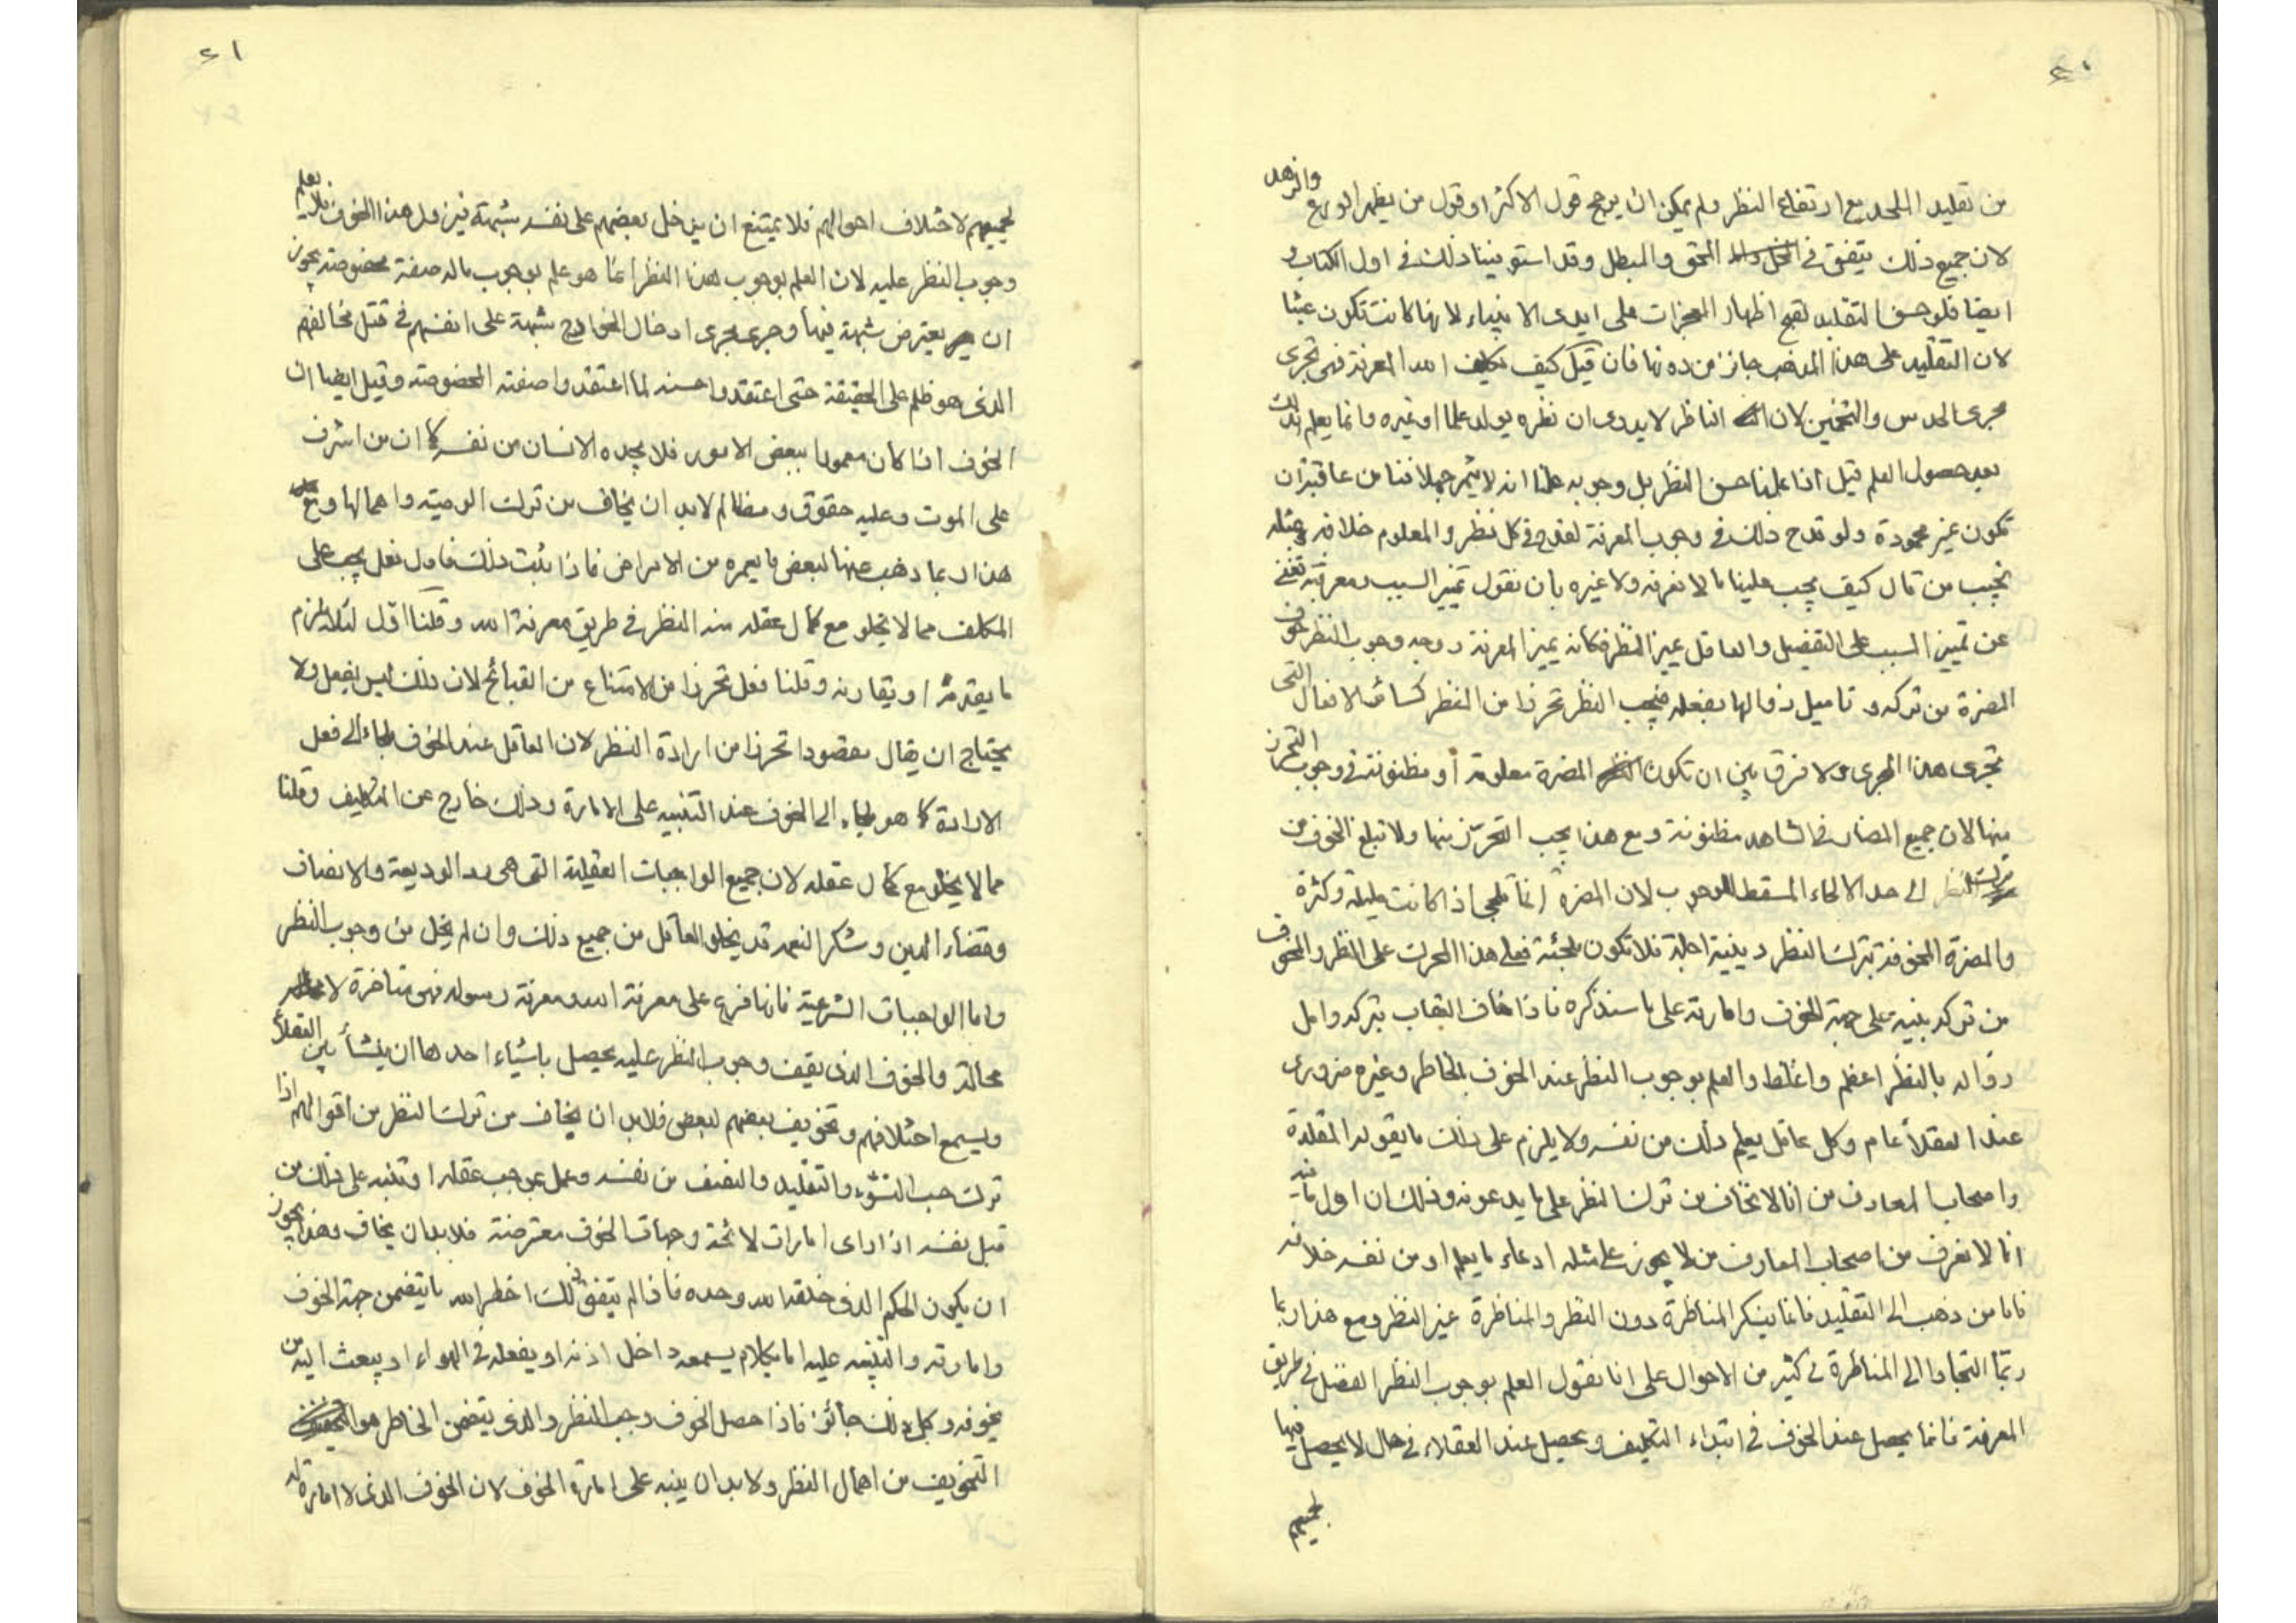 ٤٠
من تقليد الملحد مع ارتفاع النظر ولم يمكن ان يرجح قول الاكثر او قول من يظهر الورع والزهد
لان جميع ذلك يتفق في المحق والمبطل وقد استوفينا ذلك في اول الكتاب و
ايضا فلو حسن التقليد لقبح اظهار المعجزات على ايدى الانبياء لانها كانت تكون عبثا
لان التقليد على هذا المذهب جائز من دونها فان قيل كيف تكليف الله المعرفة فهي تجرى
مجرى الحدس والتخمين لان الناظر لا يدرى ان نظره يولد علما او غيره وانما يعلم ذلك
بعد حصول العلم قيل اذا علمنا حسن النظر بل وجوبه علمنا انه لا يثمر جهلا فنامن عاقبة ان
تكون غير محمودة ولو قدح ذلك في وجوب المعرفة لقدح في كل نظر والمعلوم خلافه وبمثله
نجيب من قال كيف يجب علينا ما لا نعرفه ولا غيره بان نقول تميز السبب ومعرفته تغنى
عن تمييز المسبب على التفصيل والعاقل يميز النظر فكانه يميز المعرفة ووجه وجوب النظر خوف
المضرة من تركه وتاميل زوالها بفعله فيجب النظر تحرزا من الضرر كسائر الافعال التى
تجرى هذا المجرى ولا فرق بين ان تكون المضرة معلومة او مظنونة في وجوب التحرز
منها لان جميع المضار في الشاهد مظنونة ومع هذا يجب التحرّز منها ولا تبلغ الخوف من
ترك النظر الى حد الالجاء المسقط للوجوب لان المضرة انما تلجى اذا كانت عليلة وكثرة
والمضرة المخوفة بترك النظر دينية اجلة فلا تكون ملجئة فعلى هذا المحرك على النظر والمخوف
من تركه ينبه على جهة الخوف وامارته على ما سنذكره فاذا خاف العقاب بتركه وامل
زواله بالنظر اعظم واغلظ والعلم بوجوب النظر عند الخوف بالخاطر وغيره ضرورى
عند العقلاء عام وكل عاقل يعلم ذلك من نفسه ولا يلزم على ذلك ما يقوله المقلدة
واصحاب المعارف من انا لا نخاف من ترك النظر على ما يدعونه وذلك ان اول ما فيه
انا لا نعرف من اصحاب المعارف من لا يجوز على مثله ادعاء ما يعلم او من نفسه خلافه
فاما من ذهب الى التقليد فانما ينكر المناظرة دون النظر والمناظرة غير النظر ومع هذا ربما
ربّما التجاوا الى المناظرة في كثير من الاحوال على انا نقول العلم بوجوب النظر المفضل في طريق
المعرفة فانما يحصل عند الخوف في ابتداء التكليف ويحصل عند العقلاء في حال لا يحصل فيها
لجميعهم
٤١
لجميعهم لاختلاف احوالهم فلا يمتنع ان يدخل بعضهم على نفسه شبهة فيزول هذا الخوف فلا يعلم
وجوب النظر عليه لان العلم بوجوب هذا النظر انما هو علم بوجوب ماله صفة مخصوصة يجوز
ان يعترض شبهة فيها وجرى مجرى ادخال الخوارج شبهة على انفسهم في قتل مخالفهم
الذى هو ظلم على الحقيقة حتى اعتقدوا حسنه لما اعتقدوا صفته المخصوصة وقيل ايضا ان
الخوف اذا كان معمورا ببعض الامور فلا يجده الانسان من نفسه كما ان من اشرف
على الموت وعليه حقوق ومظالم لابد ان يخاف من ترك الوصية واهمالها ومع
هذا ربما ذهب عنها لبعض ما يعمره من الامراض فاذا ثبت ذلك فاول فعل يجب على
المكلف مما لا يخلو مع كمال عقله منه النظر في طريق معرفة الله وقلنا اوّل لئلا يلزم
ما يتقدمه او يقارنه وقلنا فعل تحرزا من الامتناع من القبائح لان ذلك ليس بفعل ولا
يحتاج ان يقال مقصودا تحرزا من ارادة النظر لان العاقل عند الخوف ملجاء الى فعل
الارادة كما هو ملجاء الى الخوف عند التنبيه على الامارة وذلك خارج عن التكليف وقلنا
مما لا يخلو مع كمال عقله لان جميع الواجبات العقلية التى هى رد الوديعة والانصاف
وقضاء الدين وشكر النعمه قد يخلو العاقل من جميع ذلك وان لم يخل من وجوب النظر
واما الواجبات الشرعية فانها فرع على معرفة الله ومعرفة رسوله فهى متاخرة لا
محالة والخوف الذى يقف وجوب النظر عليه يحصل باشياء احدها ان ينشأ بين العقلاء
ويسمع اختلافهم وتخويف بعضهم لبعض فلابد ان يخاف من ترك النظر من اقوالهم اذا
ترك حب النشوء والتقليد والنصف من نفسه وعمل بموجب عقله او تنبه على ذلك من
قبل نفسه اذا راى امارات لائحة وجهات الخوف معترضة فلابد ان يخاف وهذا يجوز
ان يكون الحكم الذى خلقه الله وحده فاذا لم يتفق ذلك اخطر الله ما يتضمن جهة الخوف
وامارته والتنبيه عليه اما بكلام يسمعه داخل اذنه او يفعله في الهواء او يبعث اليه من
يخوفه وكل ذلك جائز فاذا حصل الخوف وجب النظر والذى يتضمن الخاطر هو
التخويف من اهمال النظر ولابد ان ينبه على امارة الخوف لان الخوف الذى لا امارة له